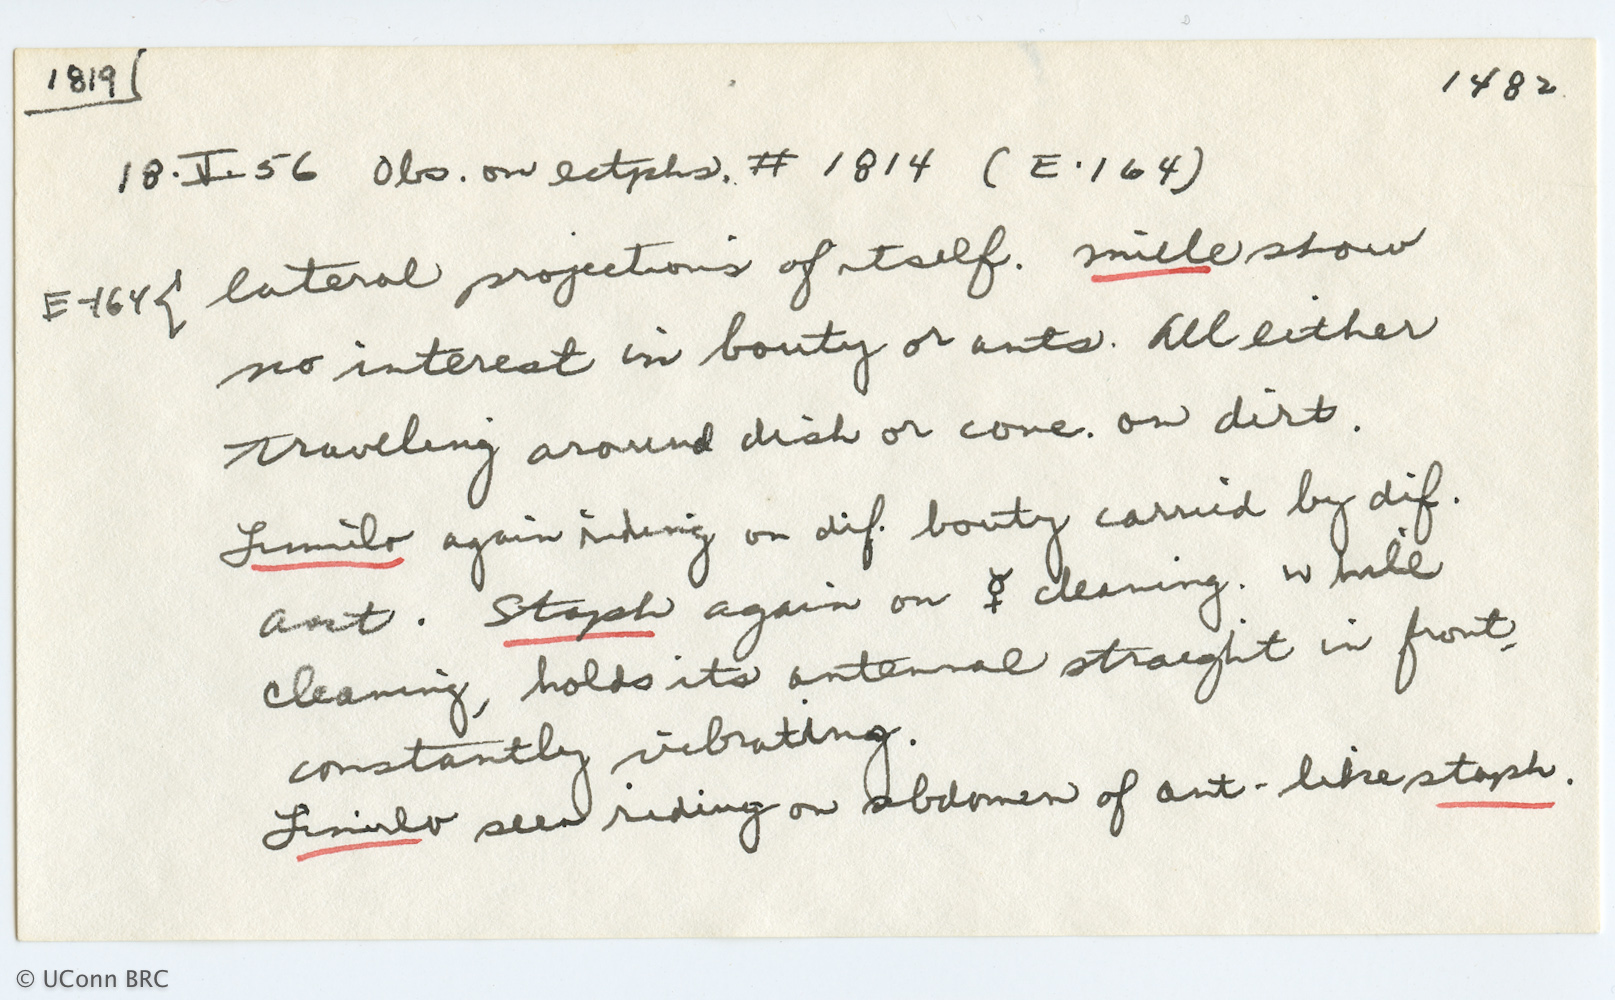 1819 1482
18.V.56 Obs. on ectphs. # 1814 (E.164)
E-164{ lateral projections of itself. mille show
no interest in bouty or ants. All either
traveling around dish or conc. on dirt.
Limulo again riding on dif. bouty carried by dif.
ant. Staph again on ☿ cleaning. While
cleaning, holds its antennal straight in front,
constantly vibrating.
Limulo seen riding on abdomen of ant-like staph.
© UConn BRC